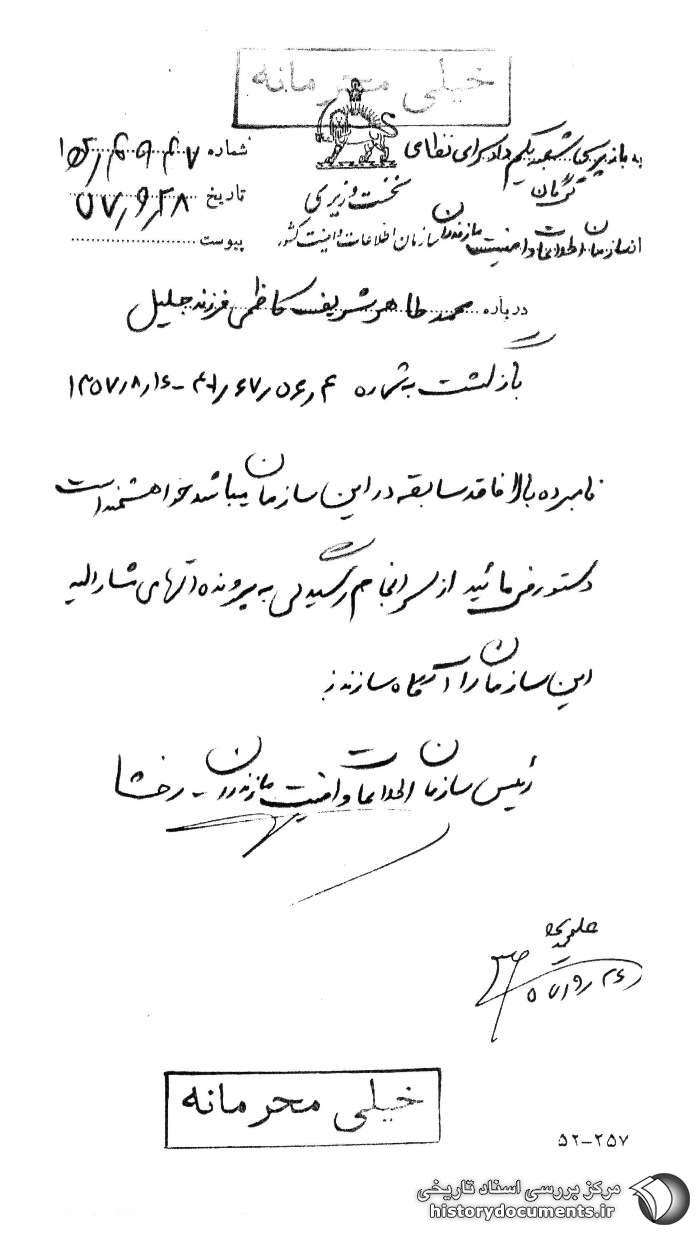 خیلی محرمانه
به بازپرسی شعبه یکم دادسرای نظامی گرگان
نخست وزیری
سازمان اطلاعات و امنیت کشور
شماره
تاریخ ۵۷/۹/۲۸
پیوست
از سازمان اطلاعات و امنیت مازندران
درباره محمد طاهر شریف کاظمی فرزند جلیل
بازگشت به شماره ۱۳۵۷/۸/۱۶
نامبرده بالا فاقد سابقه در این سازمان میباشد خواهشمند است
دستور فرمائید از سرانجام رسیدگی به پرونده اتهامی مشارالیه
این سازمان را آگاه سازند
رئیس سازمان اطلاعات و امنیت مازندران - رخشا
۵۷/۹/۲۶
خیلی محرمانه
۵۲-۲۵۷
مرکز بررسی اسناد تاریخی
historydocuments.ir